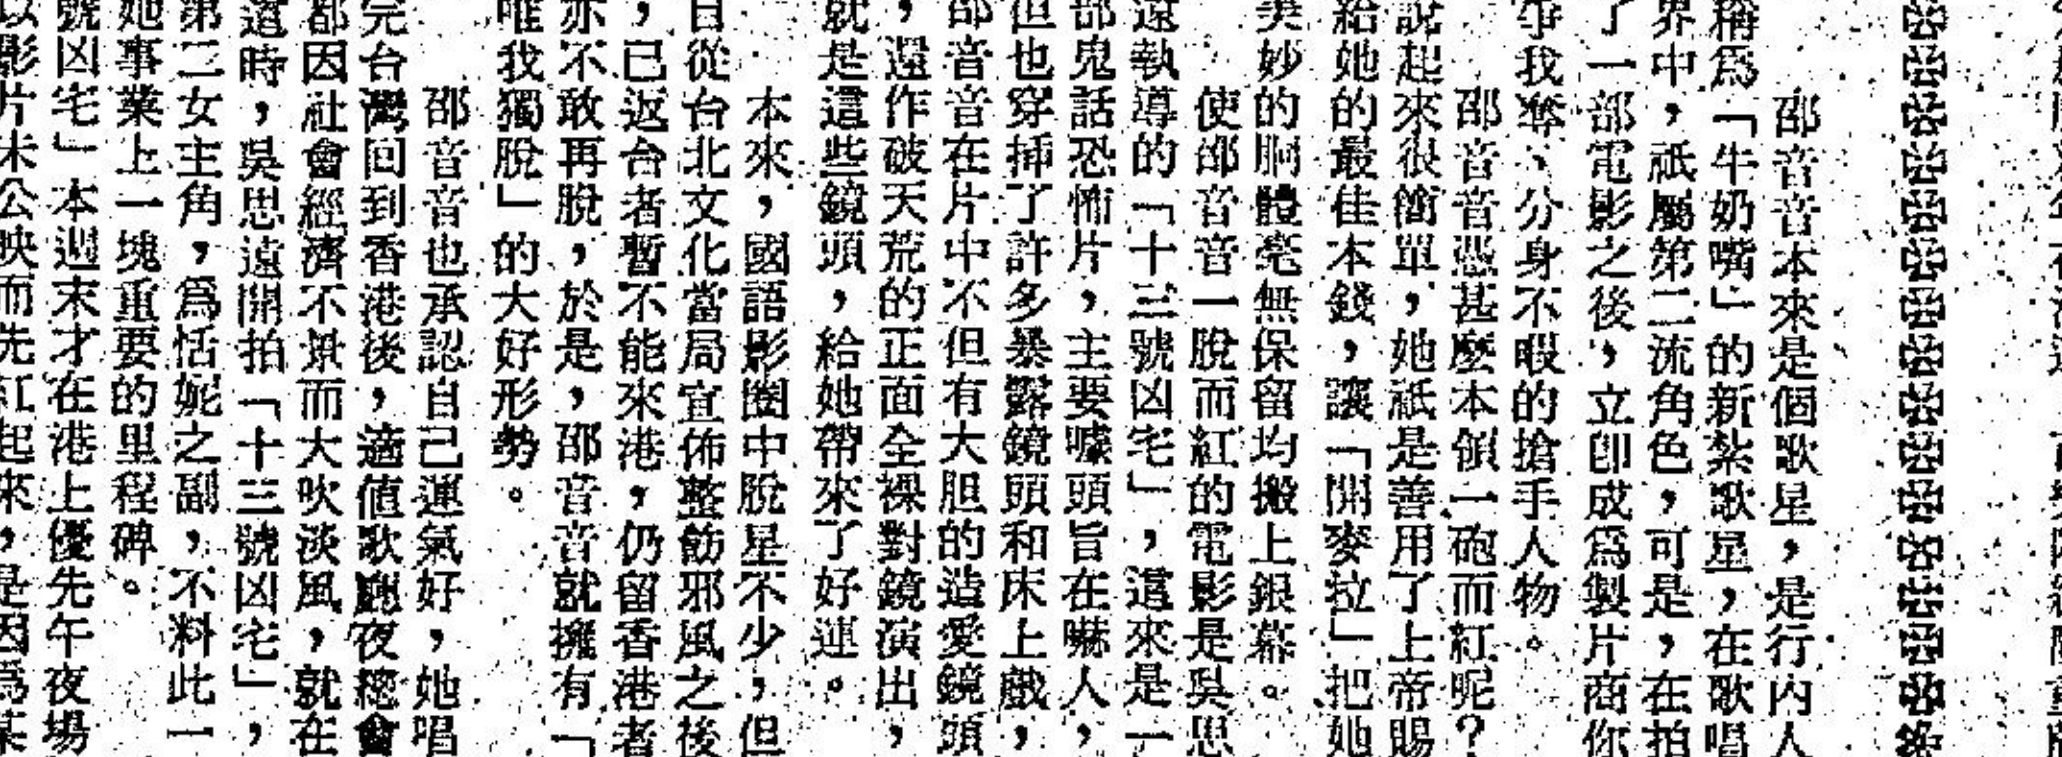 邵音音本來是個歌星，是行內人
稱爲「牛奶嘴」的新紮歌星，在歌唱
界中，祇屬第二流角色，可是，在拍
了一部電影之後，立即成爲製片商你
爭我奪、分身不暇的搶手人物。
邵音音憑甚麼本領一砲而紅呢？
說起來很簡單，她祇是善用了上帝賜
給她的最佳本錢，讓「開麥拉」把她
美妙的胴體毫無保留均搬上銀幕。
使邵音音一脫而紅的電影是吳思
遠執導的「十三號凶宅」，這來是一
部鬼話恐怖片，主要噱頭旨在嚇人，
但也穿挿了許多暴露鏡頭和床上戲，
邵音音在片中不但有大胆的造愛鏡頭
，還作破天荒的正面全裸對鏡演出，
就是這些鏡頭，給她帶來了好運。
本來，國語影圈中脫星不少，但
自從台北文化當局宣佈整飭邪風之後
，已返台者暫不能來港，仍留香港者
亦不敢再脫，於是，邵音音就擁有「
唯我獨脫」的大好形勢。
邵音音也承認自己運氣好，她唱
完台灣回到香港後，適値歌廳夜總會
都因社會經濟不景而大吹淡風，就在
這時，吳思遠開拍「十三號凶宅」，
第二女主角，爲恬妮之副，不料此一
她事業上一塊重要的里程碑。
號凶宅」本週末才在港上優先午夜場
以影片未公映而先紅起來，是因爲某